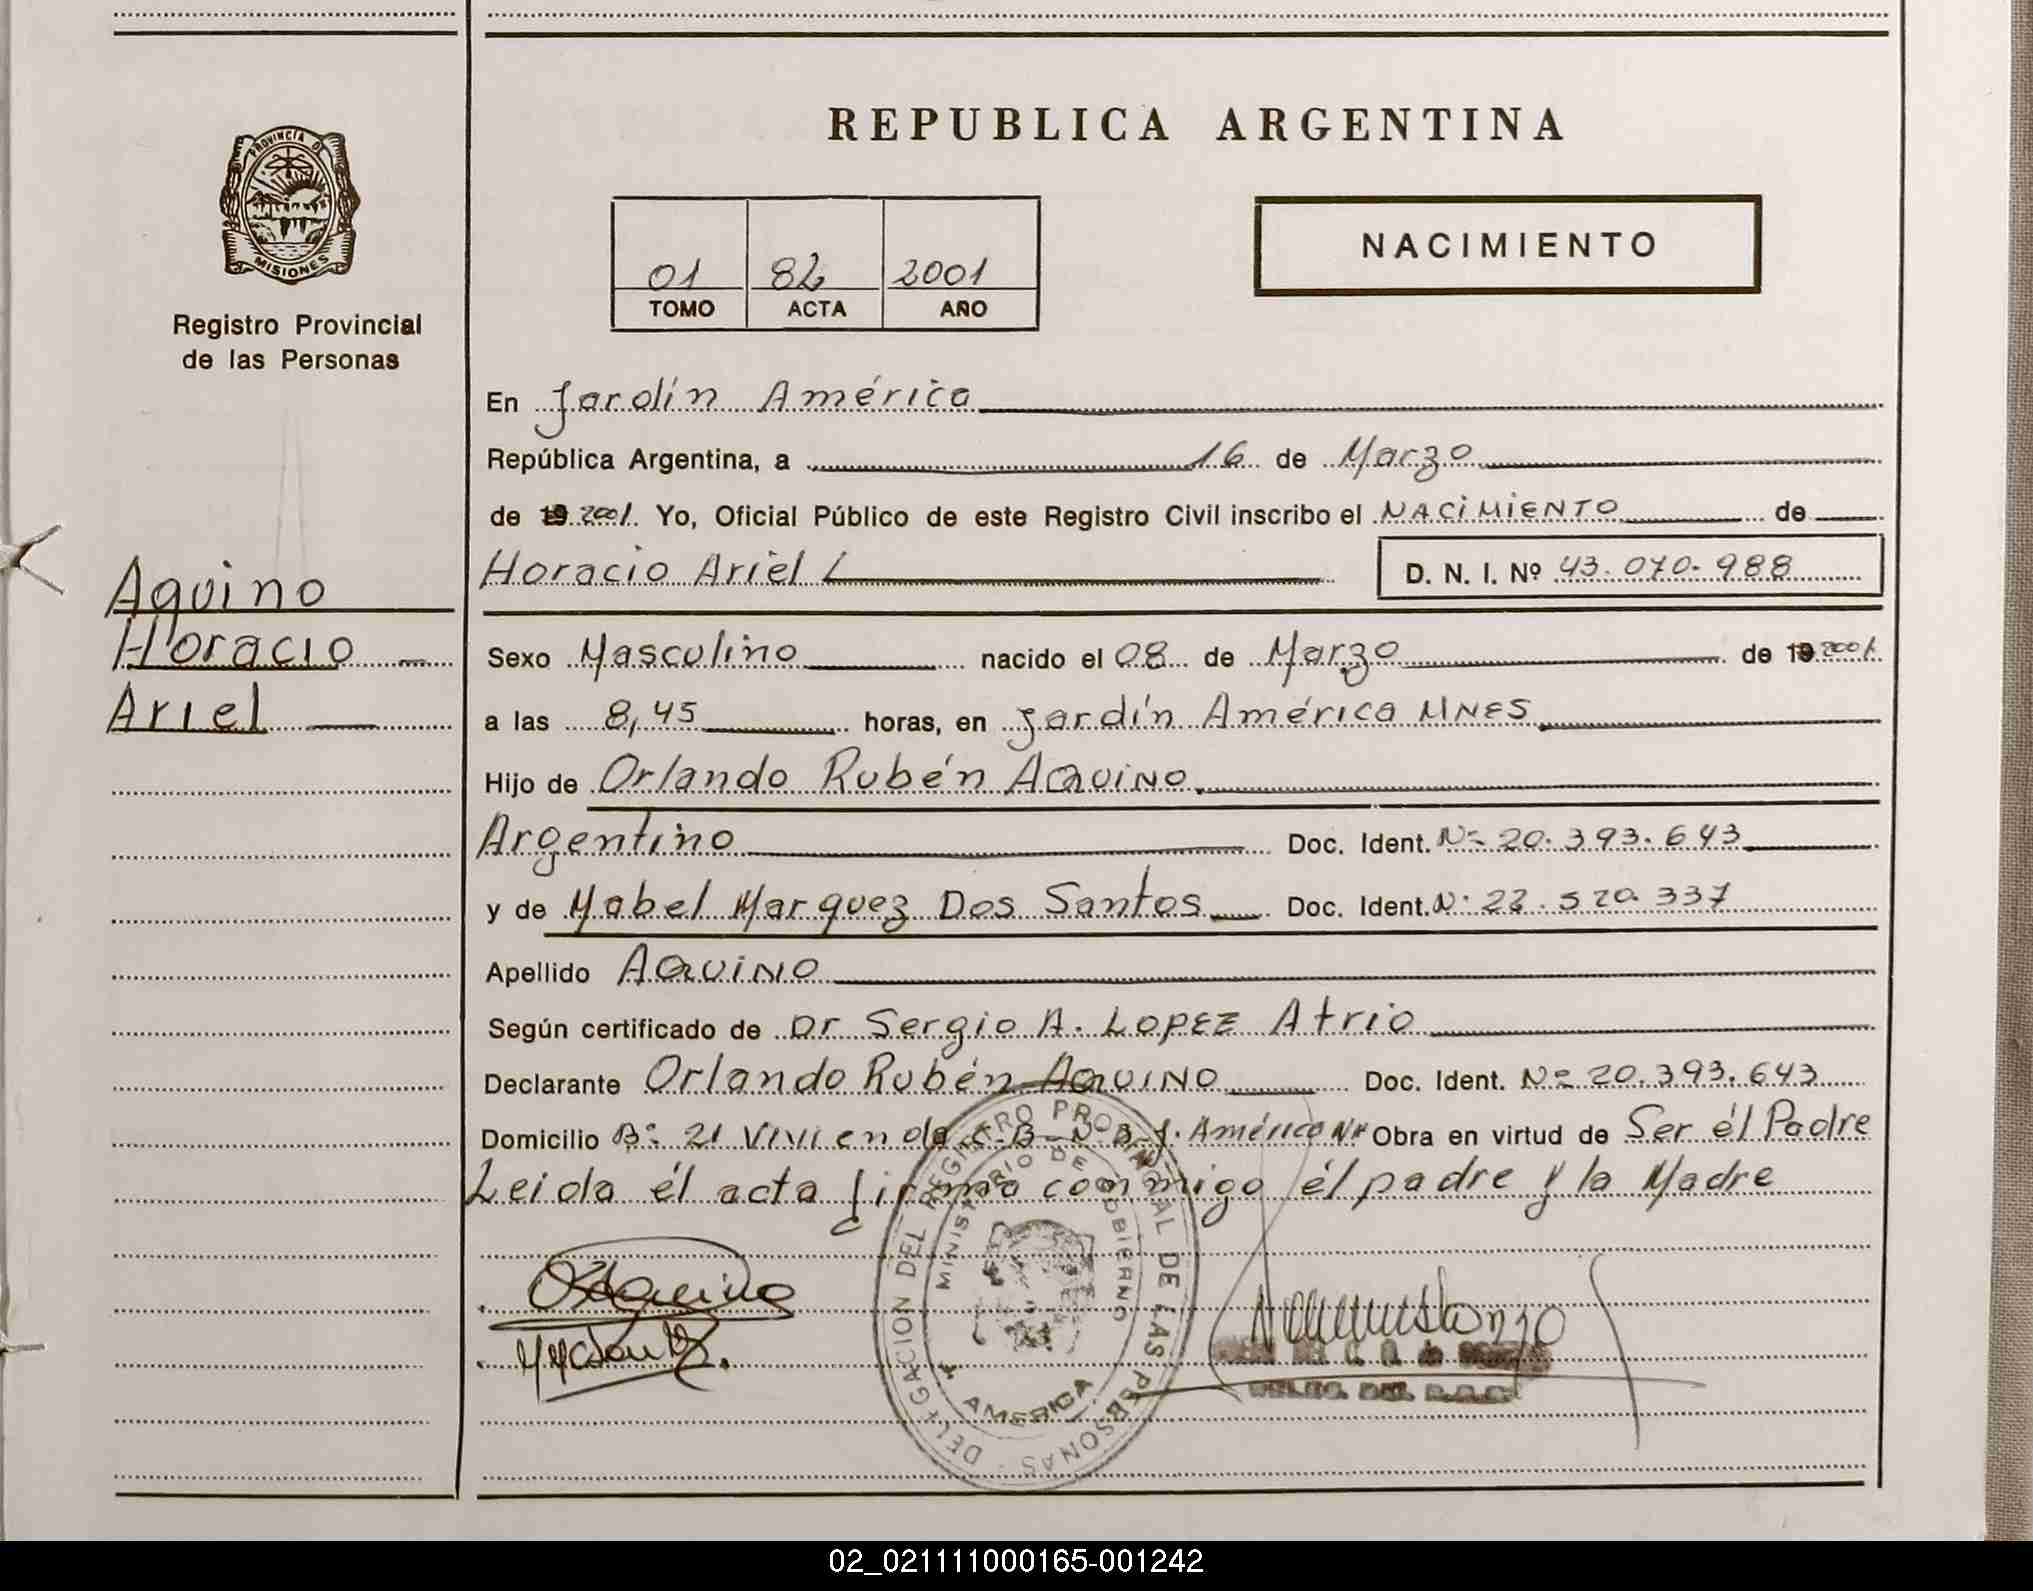 REPUBLICA ARGENTINA
PROVINCIA DE
MISIONES
Registro Provincial
de las Personas
01 82 2001
TOMO ACTA AÑO
NACIMIENTO
En Jardín América
República Argentina, a 16 de Marzo
de 19 2001. Yo, Oficial Público de este Registro Civil inscribo el NACIMIENTO de
Horacio Ariel D. N. I. Nº 43.070.988
Aquino
Horacio
Ariel
Sexo Masculino nacido el 08 de Marzo de 19 2001
a las 8,45 horas, en Jardín América MNES
Hijo de Orlando Rubén AQUINO
Argentino Doc. Ident. Nº 20.393.643
y de Mabel Marquez Dos Santos Doc. Ident. Nº 22.520.337
Apellido AQUINO
Según certificado de Dr Sergio A. LOPEZ Atrio
Declarante Orlando Rubén AQUINO Doc. Ident. Nº 20.393.643
Domicilio Bº 21 Vivienda J. América Obra en virtud de Ser él Padre
Leida él acta firma conmigo él padre y la Madre
DELEGACION DEL REGISTRO PROVINCIAL DE LAS PERSONAS
MINISTERIO DE GOBIERNO
AMERICA
02_021111000165-001242